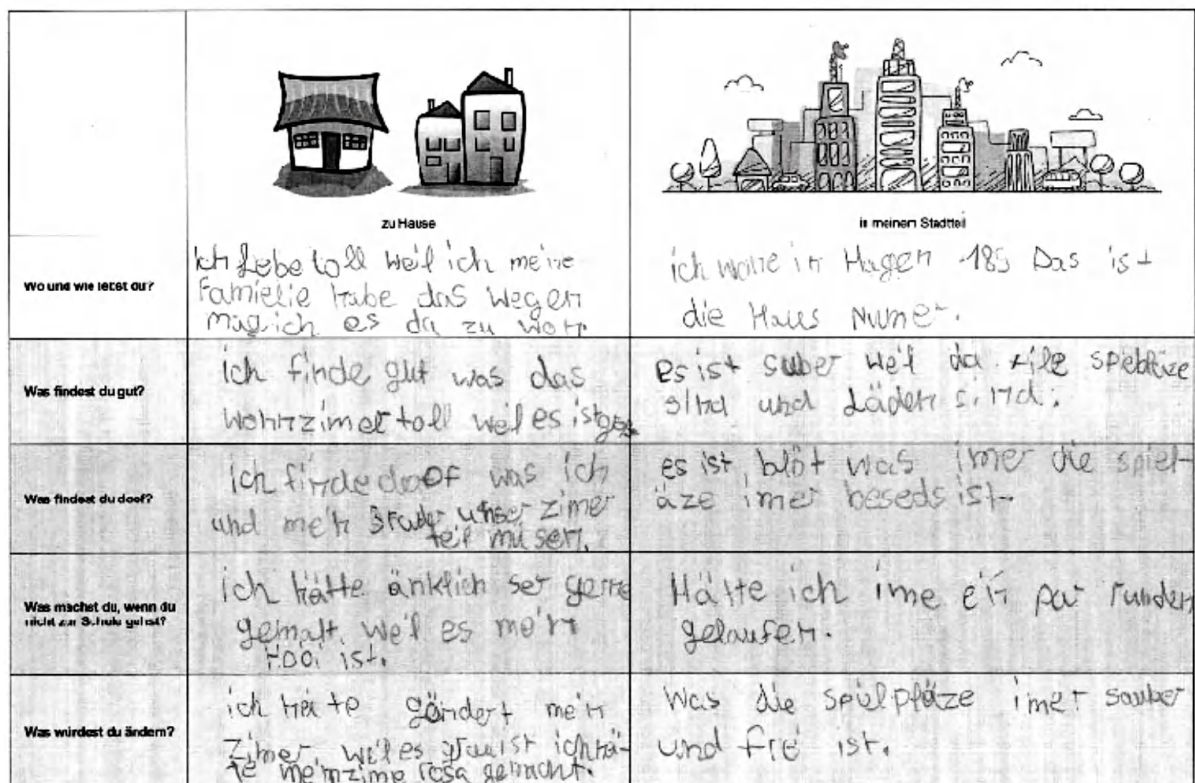 zu Hause
in meinem Stadtteil
Wo und wie lebst du?
ich Lebe toll weil ich meine
Famielie habe das wegen
mag ich es da zu won.
ich wone in Hagen 185 Das ist
die Haus Numer.
Was findest du gut?
ich finde gut was das
wohnzimer toll weil es ist
es ist suber weil da file spiebläze
sind und Läden sind.
Was findest du doof?
ich finde doof was ich
und mein Bruder unser zimer
teil müsen.
es ist blöt was imer die spiel-
äze imer beseds ist
Was machst du, wenn du
nicht zur Schule gehst?
ich hätte änklich ser gerne
gemalt weil es mein
Hobi ist.
Hätte ich ime ein par runden
gelaufen.
Was würdest du ändern?
ich häte gändert mein
zimer weil es grau ist ich hä-
te mein zime rosa gemacht.
Was die spielpläze imer sauber
und frei ist.